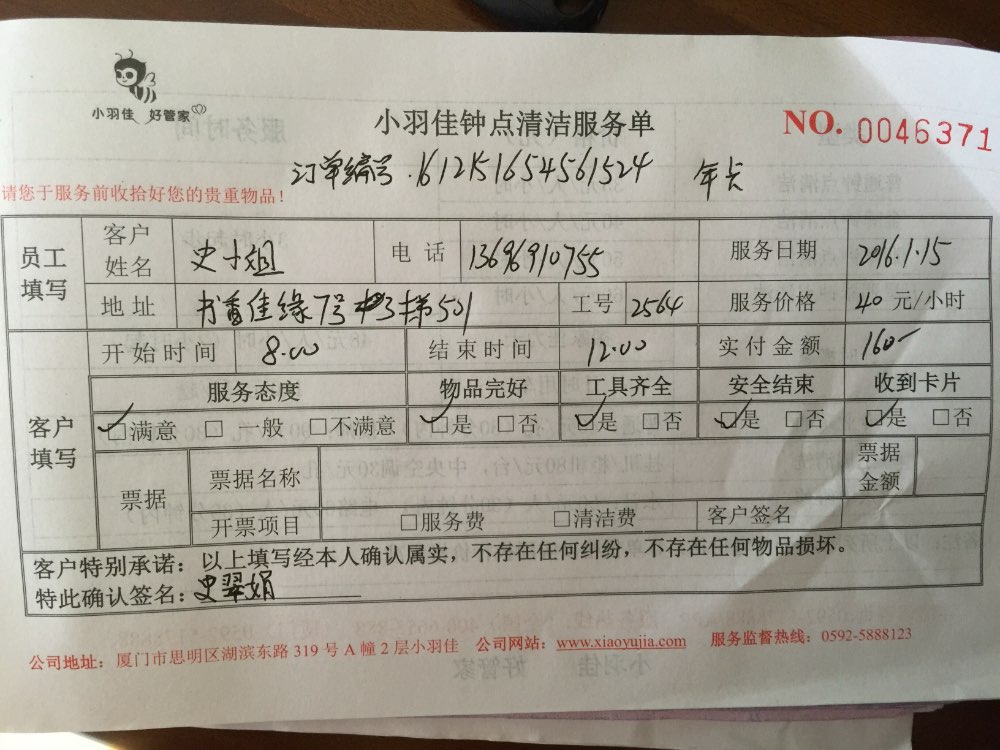 小羽佳 好管家
小羽佳钟点清洁服务单
NO. 0046371
订单编号.161215165456 1524 年卡
请您于服务前收拾好您的贵重物品!
员工填写 客户姓名 史小姐 电话 13696910755 服务日期 2016.1.15
地址 书香佳缘7号 梯501 工号 2564 服务价格 40 元/小时
客户填写 开始时间 8.00 结束时间 12.00 实付金额 160-
服务态度 物品完好 工具齐全 安全结束 收到卡片
✓□满意 □一般 □不满意 ✓□是 □否 ✓□是 □否 ✓□是 □否 ✓□是 □否
票据 票据名称 票据金额
开票项目 □服务费 □清洁费 客户签名
客户特别承诺:以上填写经本人确认属实,不存在任何纠纷,不存在任何物品损坏。
特此确认签名:史翠娟
公司地址:厦门市思明区湖滨东路 319 号 A 幢 2 层小羽佳 公司网站:www.xiaoyujia.com 服务监督热线:0592-5888123